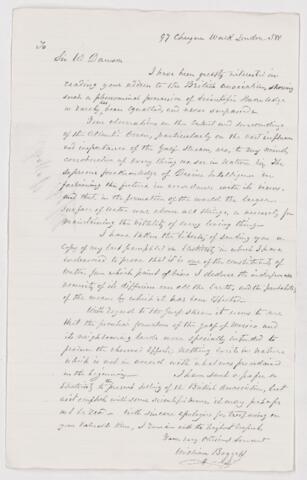 To
97 Cheyne Walk London SW
Sir W. Dawson
I have been greatly interested in
reading your address to the British Association, showing
such a phenomenal possession of Scientific Knowledge
as rarely been Equalled, and never surpassed.
Your observations on the extent and surroundings
of the Atlantic Ocean, particularly on the vast influence
and importance of the Gulf Stream, are, to my mind
corroborative of every thing we see in Nature by The
Supreme foreknowledge of Divine Intelligence in
fashioning the future in accordance with its views,
and that, in the formation of the world the larger
surface of water was above all things, a necessity for
maintaining the vitality of every living thing.
I have taken the liberty of sending you a
Copy of my last pamphlet on Electricity in which I have
endeavored to prove that it is one of the constituents of
Water, from which point of view I deduce the indispensable
necessity of its diffusion over all the Earth, and the probability
of the means by which it has been effected.
With regard to the Gulf Stream it seems to me
that the peculiar formation of the Gulf of Mexico and
its neighbouring lands were specially intended to
produce the observed effects, nothing exists in nature
which is not in accord with what was preordained
in the beginning
I have sent a paper on
Electricity to the present sitting of the British Association, but
not complete with some scientific names it may perhaps
not be read — with sincere apologies for trespassing on
your valuable time, I remain with the highest respect
Your very Obedient Servant
William Boggett